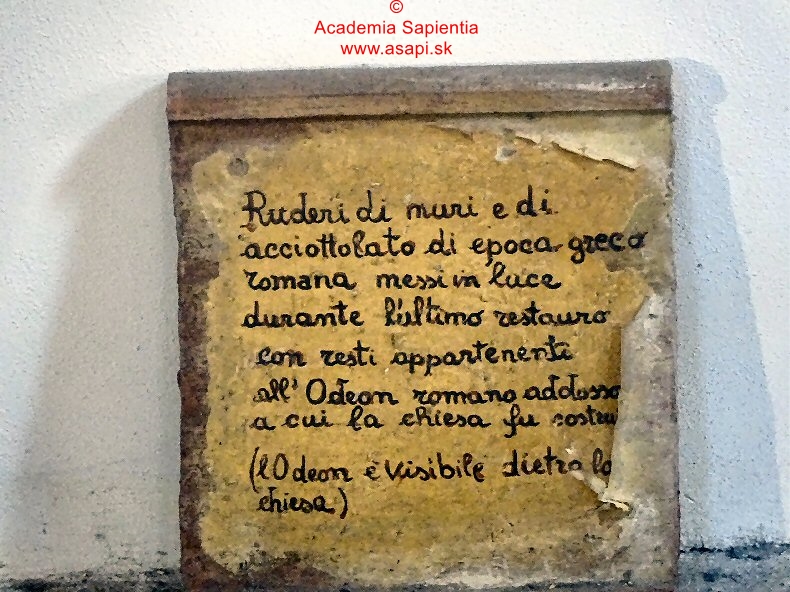 ©
Academia Sapientia
www.asapi.sk
Ruderi di muri e di
acciottolato di epoca greco
romana messi in luce
durante l'ultimo restauro
con resti appartenenti
all'Odeon romano addosso
a cui la chiesa fu costru
(l'Odeon è visibile dietro la
chiesa)